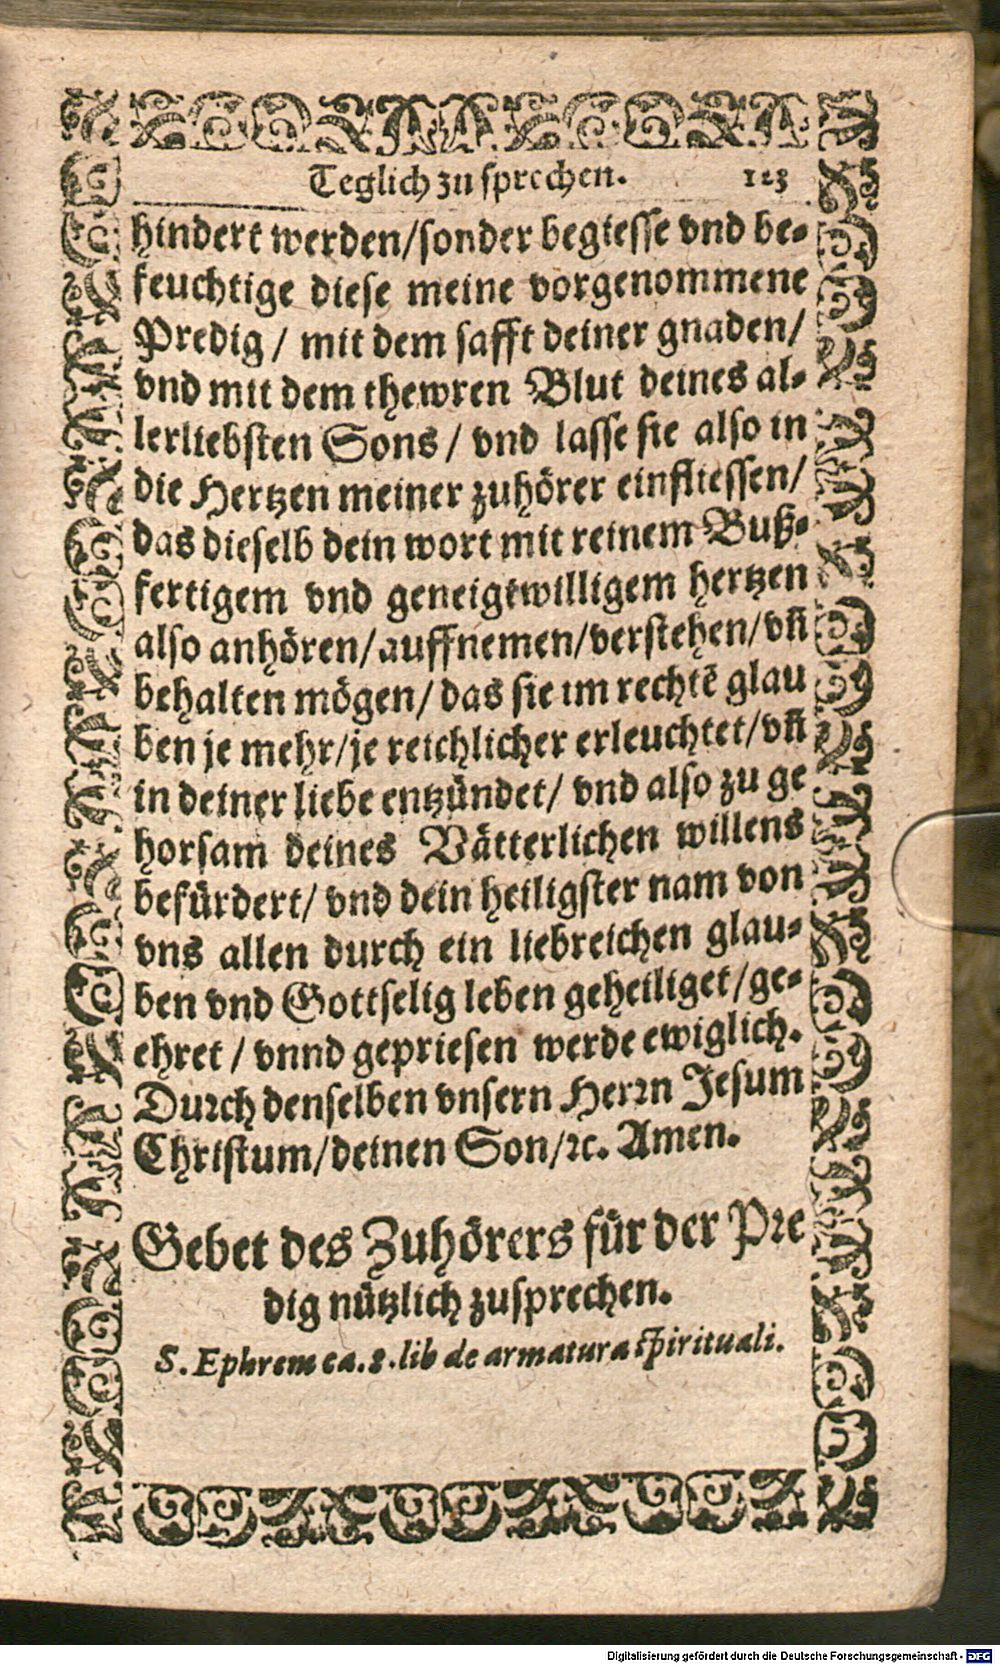 Teglich zu sprechen. 123
hindert werden/sonder begiesse vnd be-
feuchtige diese meine vorgenommene
Predig / mit dem safft deiner gnaden/
vnd mit dem thewren Blut deines al-
lerliebsten Sons / vnd lasse sie also in
die Hertzen meiner zuhörer einfliessen/
das dieselb dein wort mit reinem Buß-
fertigem vnd geneigtwilligem hertzen
also anhören/auffnemen/verstehen/vñ
behalten mögen/ das sie im rechtẽ glau
ben je mehr/je reichlicher erleuchtet/vñ
in deiner liebe entzündet/ vnd also zu ge
horsam deines Vätterlichen willens
befürdert/ vnd dein heiligster nam von
vns allen durch ein liebreichen glau-
ben vnd Gottselig leben geheiliget/ge-
ehret / vnnd gepriesen werde ewiglich.
Durch denselben vnsern Herrn Jesum
Christum/deinen Son/ꝛc. Amen.
Gebet des Zuhörers für der Pre
dig nützlich zusprechen.
S. Ephrem ca. 8. lib de armatura spirituali.
Digitalisierung gefördert durch die Deutsche Forschungsgemeinschaft - DFG